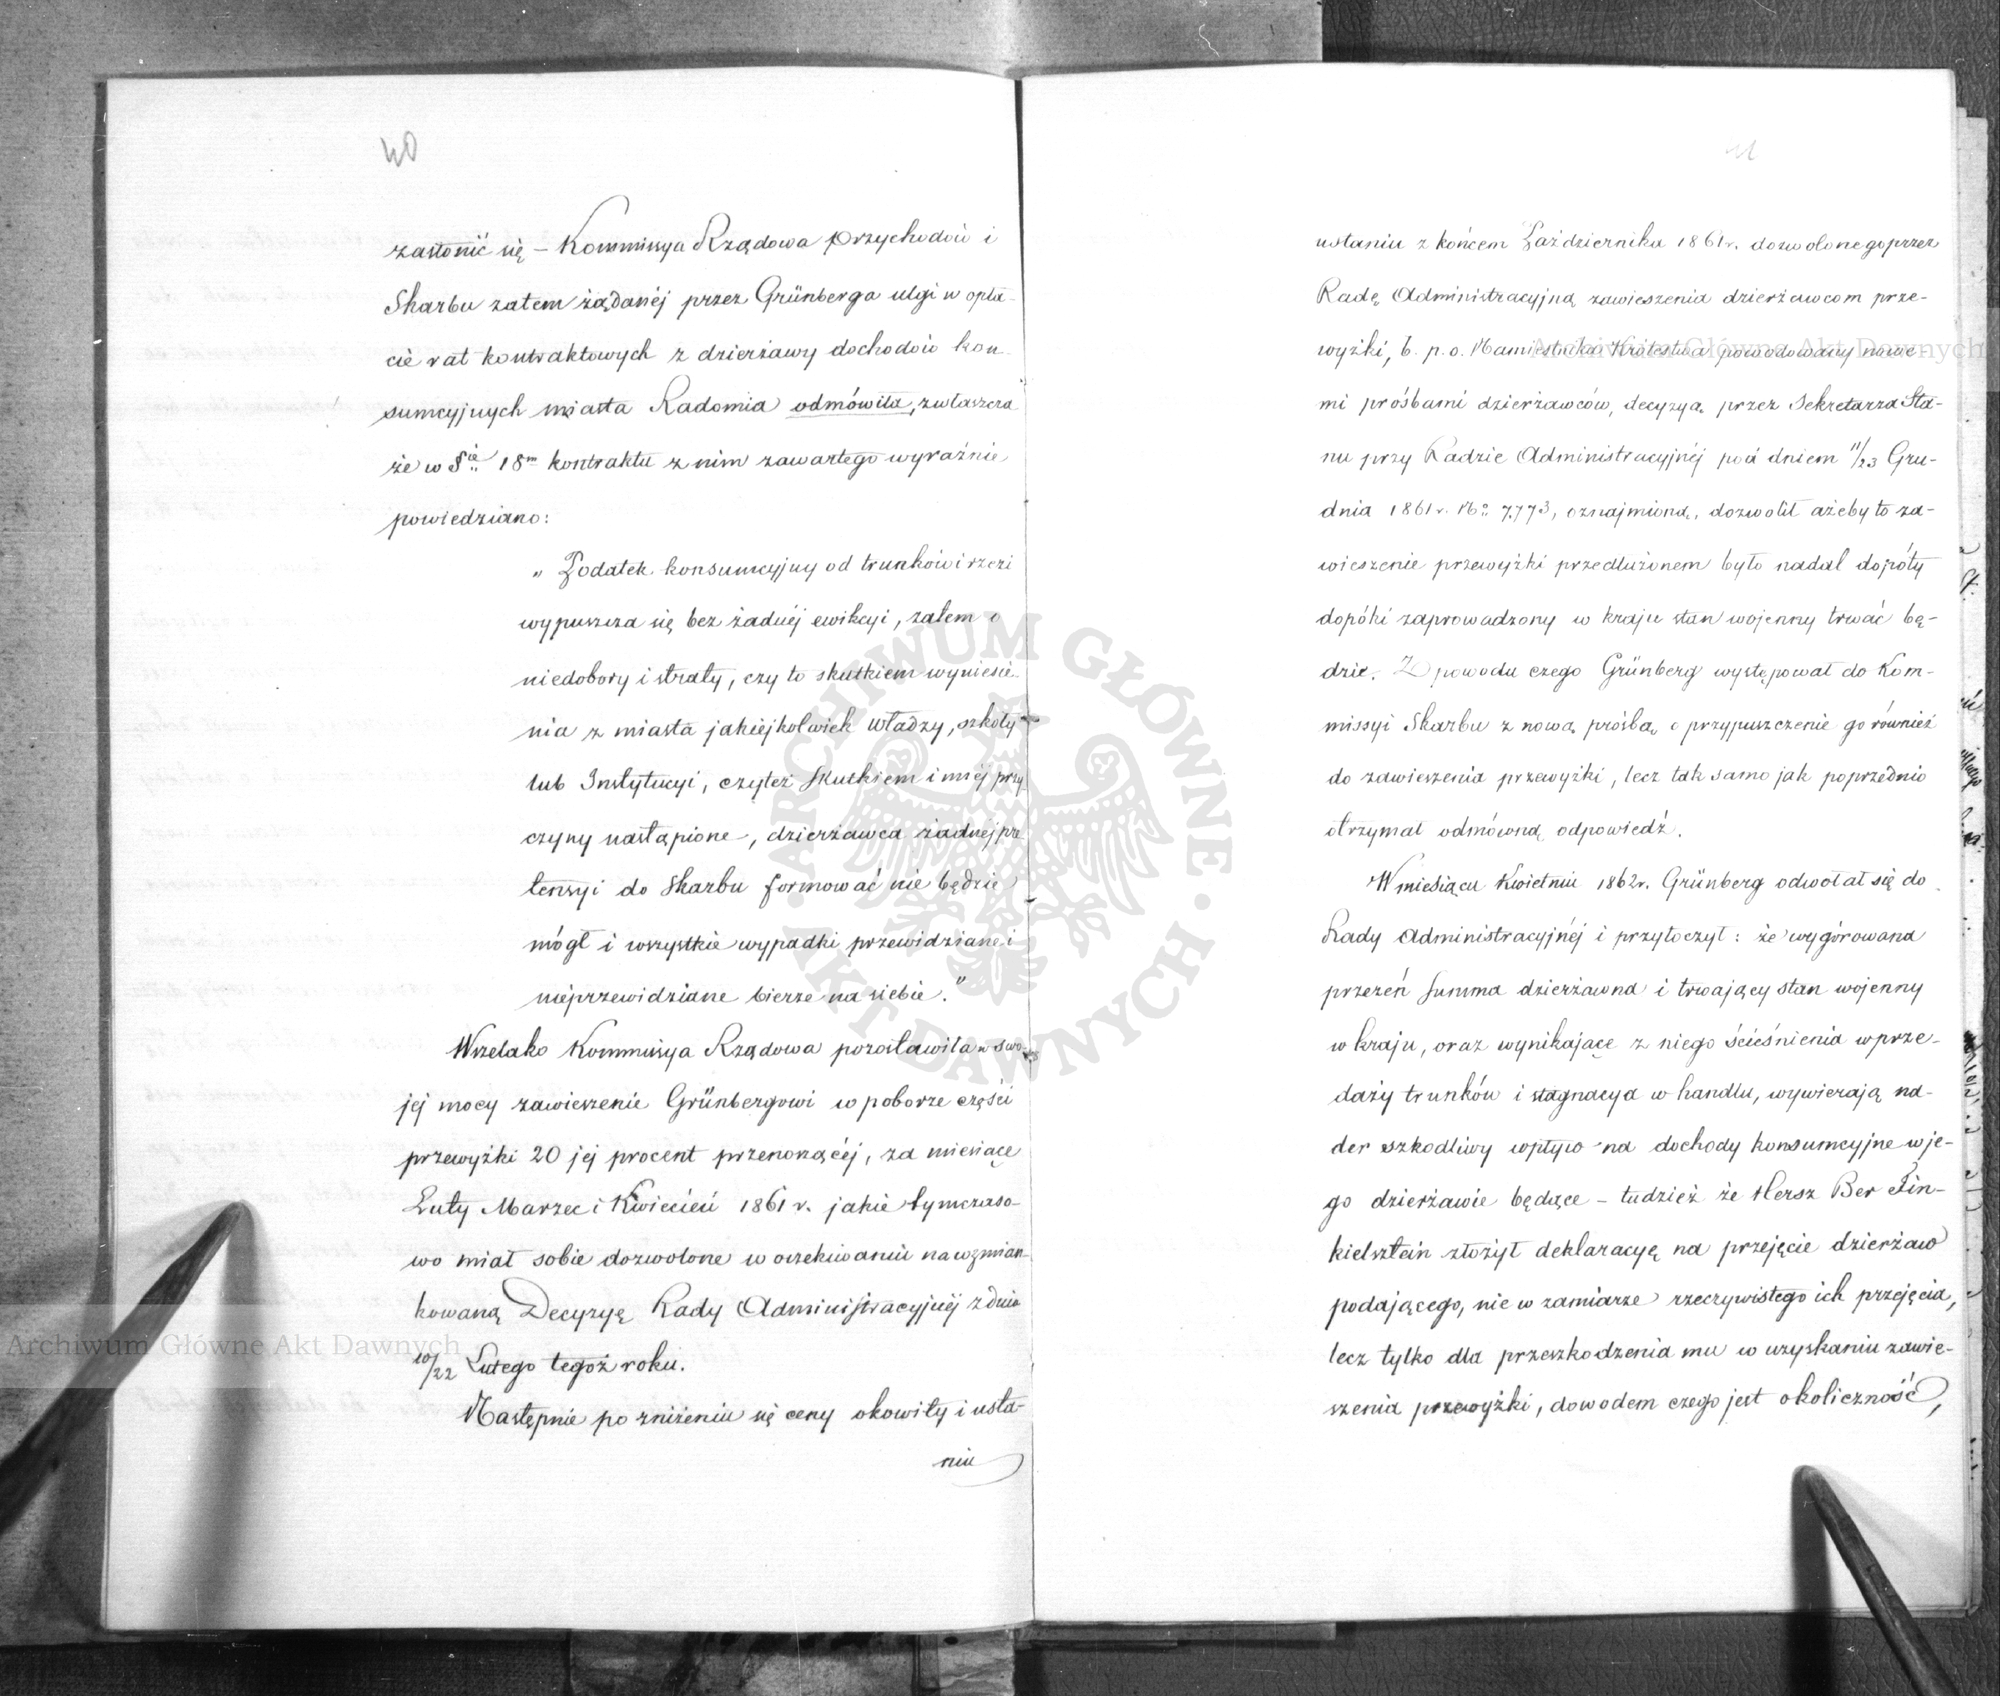 40
zasłonić się – Kommissya Rządowa Przychodów i
Skarbu zatem żądanéj przez Grünberga ulgi w opła-
cie rat kontraktowych z dzierżawy dochodów kon-
sumcyjnych miasta Radomia odmówiła, zwłaszcza
że w §cie 18m kontraktu z nim zawartego wyraźnie
powiedziano:
„Podatek konsumcyjny od trunków i rzezi
wypuszcza się bez żadnéj ewikcyi, zatem o
niedobory i straty, czy to skutkiem wyniesie-
nia z miasta jakiéjkolwiek Władzy, szkoły
lub Instytucyi, czyteż skutkiem innéj przy
czyny nastąpione, dzierżawca żadnéj pre
tensyi do Skarbu formować nie będzie
mógł i wszystkie wypadki przewidziane i
nieprzewidziane bierze na siebie."
Wszelako Kommissya Rządowa pozostawiła w swo-
jej mocy zawieszenie Grünbergowi w poborze części
przewyżki 20 jej procent przenoszącéj, za miesiące
Luty Marzec i Kwiecień 1861 r. jakie tymczaso-
wo miał sobie dozwolone w oczekiwaniu na wzmian-
kowaną Decyzyę Rady Administracyjnéj z dnia
10/22 Lutego tegoż roku.
Następnie po zniżeniu się ceny okowity i usta-
niu
11
ustaniu z końcem Października 1861 r. dozwolonego przez
Radę Administracyjną zawieszenia dzierżawcom prze-
wyżki, b. p. o. Namiestnika Królestwa powodowany nowe-
mi prośbami dzierżawców, decyzyą przez Sekretarza Sta-
nu przy Radzie Administracyjnéj pod dniem 11/23 Gru-
dnia 1861 r. No 7,773, oznajmioną, dozwolił ażeby to za-
wieszenie przewyżki przedłużonem było nadal dopóty
dopóki zaprowadzony w kraju stan wojenny trwać bę-
dzie. Z powodu czego Grünberg występował do Kom-
missyi Skarbu z nową prośbą o przypuszczenie go również
do zawieszenia przewyżki, lecz tak samo jak poprzednio
otrzymał odmówną odpowiedź.
W miesiącu Kwietniu 1862 r. Grünberg odwołał się do
Rady Administracyjnéj i przytoczył: że wygórowana
przezeń summa dzierżawna i trwający stan wojenny
w kraju, oraz wynikające z niego ścieśnienia w prze-
daży trunków i stagnacya w handlu, wywierają na-
der szkodliwy wpływ na dochody konsumcyjne w je-
go dzierżawie będące – tudzież że Hersz Ber Fin-
kielsztein złożył deklaracyę na przejęcie dzierżaw
podającego, nie w zamiarze rzeczywistego ich przejęcia,
lecz tylko dla przeszkodzenia mu w uzyskaniu zawie-
szenia przewyżki, dowodem czego jest okoliczność,
Archiwum Główne Akt Dawnych
Archiwum Główne Akt Dawnych
ARCHIWUM GŁÓWNE AKT DAWNYCH